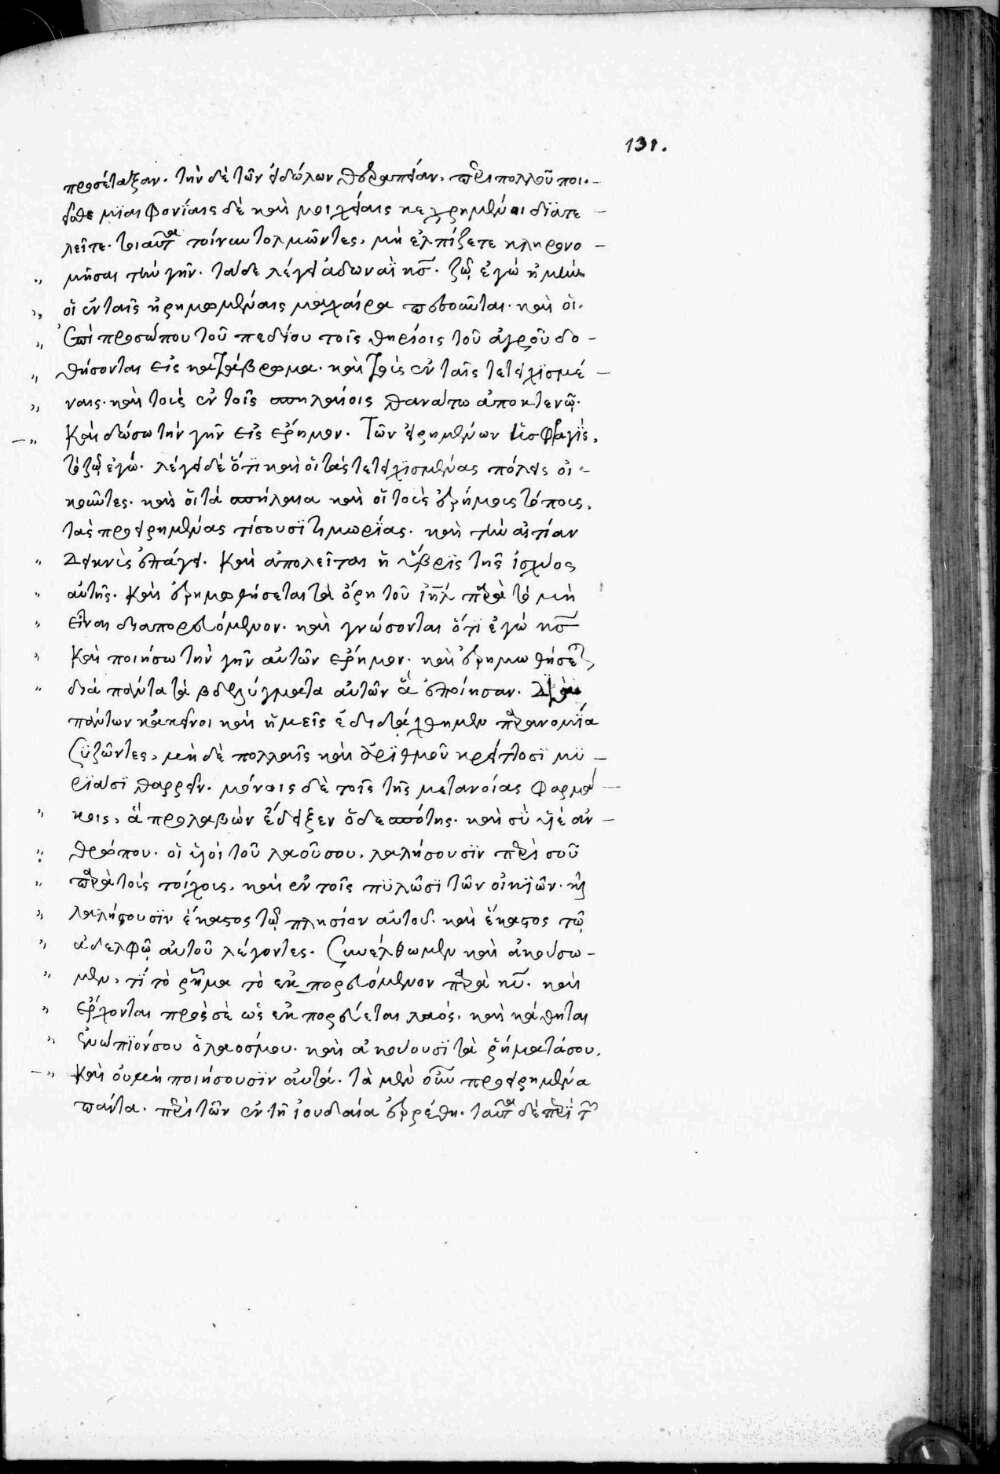 131.
προσέταξαν. τὴν δὲ τῶν εἰδώλων θεραπείαν, περὶ πολλοῦ ποι-
εῖσθε μιαιφονίαις δὲ καὶ μοιχείαις κεχρημένοι διατε
λεῖτε. τοιαῦτα τοίνυν τολμῶντες, μὴ ἐλπίζετε κληρονο
μῆσαι τὴν γῆν. τάδε λέγει ἀδωναῒ κς̅. ζῶ ἐγὼ εἰ μὴν
οἱ ἐν ταῖς ἠρημωμέναις μαχαίρα πεσοῦνται. καὶ οἱ
ἐπὶ προσώπου τοῦ πεδίου τοῖς θηρίοις τοῦ ἀγροῦ δο
θήσονται εἰς κατάβρωμα. καὶ τοὺς ἐν ταῖς τετειχισμέ
ναις. καὶ τοὺς ἐν τοῖς σπηλαίοις θανάτω ἀποκτενῶ.
Καὶ δώσω τὴν γῆν εἰς ἔρημον. Τῶν εἰρημένων
τὸ ζῶ ἐγώ. λέγει δὲ ὅτι καὶ οἱ τὰς τετειχισμένας πόλεις οἰ
κοῦντες. καὶ οἱ τὰ σπήλαια καὶ οἱ τοὺς ἐρήμους τόπους,
τὰς προειρημένας τίσουσϊ τιμωρίας. καὶ τὴν αἰτίαν
δεικνὺς ἐπάγει. Καὶ ἀπολεῖται ἡ ὕβρις τῆς ἰσχύος
αὐτῆς. Καὶ ἐρημωθήσεται τὰ ὄρη τοῦ ιη̅λ παρὰ τὸ μὴ
εἶναι διαπορευόμενον. καὶ γνώσονται ὅτι ἐγὼ κς̅
Καὶ ποιήσω τὴν γῆν αὐτῶν ἔρημον. καὶ ἐρημωθήσεται
διὰ πάντα τὰ βδελύγματα αὐτῶν ἃ ἐποίησαν. Διὰ
πάντων κἀκεῖνοι καὶ ἡμεῖς ἐδιδάχθημεν παρανομία
συζῶντες, μὴ δὲ πολλαῖς καὶ ἀριθμοῦ κρείττοσϊ μυ
ριάσϊ θαρρεῖν. μόνοις δὲ τοῖς τῆς μετανοίας φαρμά
κοις, ἃ προλαβὼν ἔδειξεν ὁ δεσπότης. καὶ σὺ υἱὲ ἀν
θρώπου. οἱ υἱοὶ τοῦ λαοῦ σου, λαλήσουσϊν περὶ σοῦ
παρὰ τοὺς τοίχους, καὶ ἐν τοῖς πυλῶσϊ τῶν οἰκιῶν. καὶ
λαλήσουσϊν ἕκαστος τῶ πλησίον αὐτοῦ. καὶ ἕκαστος τῶ
ἀδελφῶ αὐτοῦ λέγοντες. Συνέλθωμεν καὶ ἀκούσω
μεν, τί τὸ ῥῆμα τὸ ἐκπορευόμενον παρὰ κυ̅. καὶ
ἔρχονται πρὸς σὲ ὡς ἐκπορεύεται λαός. καὶ κάθηται
ἐνώπιόν σου ὁ λαός μου. καὶ ἀκούουσϊ τὰ ῥήματά σου,
Καὶ οὐ μὴ ποιήσουσϊν αὐτά. τὰ μὲν οὖν προειρημένα
πάντα. περὶ τῶν ἐν τῆ ἰουδαία εὑρέθη. ταῦτα δὲ περὶ τῶν